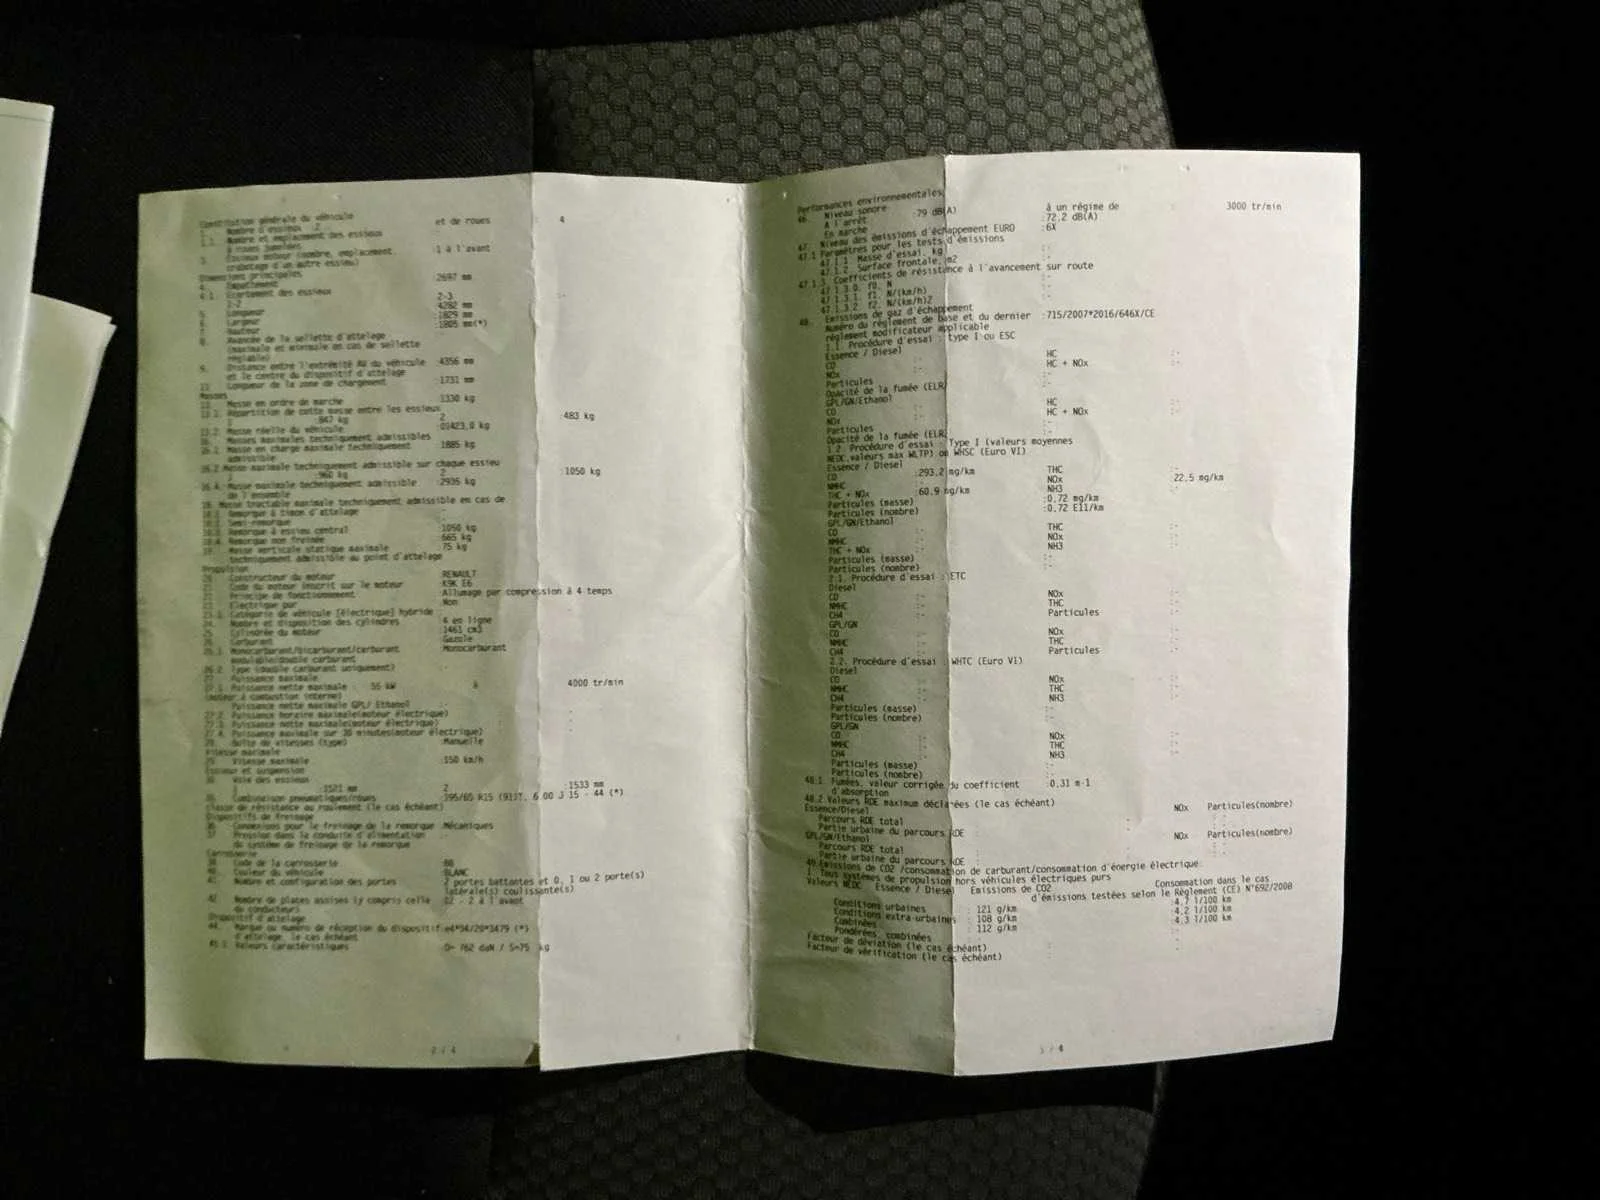 Constitution générale du véhicule
1. Nombre d'essieux :2 et de roues : 4
1.1. Nombre et emplacement des essieux
à roues jumelées
3. Essieux moteur (nombre, emplacement, :1 à l'avant
crabotage d'un autre essieu)
Dimensions principales
4. Empattement :2697 mm
4.1. Ecartement des essieux
1-2 2-3 :-
5. Longueur :4282 mm
6. Largeur :1829 mm
7. Hauteur :1805 mm(*)
8. Avancée de la sellette d'attelage
(maximale et minimale en cas de sellette
réglable)
9. Distance entre l'extrémité AV du véhicule :4356 mm
et le centre du dispositif d'attelage
11. Longueur de la zone de chargement :1731 mm
Masses
13. Masse en ordre de marche :1330 kg
13.1. Répartition de cette masse entre les essieux
1 :847 kg 2 :483 kg
13.2. Masse réelle du véhicule :01423,0 kg
16. Masses maximales techniquement admissibles
16.1. Masse en charge maximale techniquement :1885 kg
admissible
16.2 Masse maximale techniquement admissible sur chaque essieu
1 :960 kg 2 :1050 kg
16.4. Masse maximale techniquement admissible :2935 kg
de l'ensemble
18. Masse tractable maximale techniquement admissible en cas de
18.1. Remorque à timon d'attelage :
18.2. Semi-remorque :
18.3. Remorque à essieu central :1050 kg
18.4. Remorque non freinée :665 kg
19. Masse verticale statique maximale :75 kg
techniquement admissible au point d'attelage
Propulsion
20. Constructeur du moteur :RENAULT
21. Code du moteur inscrit sur le moteur :K9K E6
22. Principe de fonctionnement :Allumage par compression à 4 temps
23. Electrique pur :Non
23.1. Catégorie de véhicule [électrique] hybride :
24. Nombre et disposition des cylindres :4 en ligne
25. Cylindrée du moteur :1461 cm3
26. Carburant :Gazole
26.1. Monocarburant/bicarburant/carburant :Monocarburant
modulable/double carburant
26.2. Type (double carburant uniquement) :
27. Puissance maximale
27.1. Puissance nette maximale : 55 kW à : 4000 tr/min
(moteur à combustion interne)
Puissance nette maximale GPL/ Ethanol :
27.2. Puissance horaire maximale(moteur électrique) :
27.3. Puissance nette maximale(moteur électrique) :
27.4. Puissance maximale sur 30 minutes(moteur électrique) :
28. Boîte de vitesses (type) :Manuelle
Vitesse maximale
29. Vitesse maximale :150 km/h
Essieux et suspension
30. Voie des essieux
1 :1521 mm 2 :1533 mm
35. Combinaison pneumatiques/roues :195/65 R15 (91)T, 6.00 J 15 - 44 (*)
Classe de résistance au roulement (le cas échéant)
Dispositifs de freinage
36. Connexions pour le freinage de la remorque :Mécaniques
37. Pression dans la conduite d'alimentation :
du système de freinage de la remorque
Carrosserie
38. Code de la carrosserie :BB
40. Couleur du véhicule :BLANC
41. Nombre et configuration des portes :2 portes battantes et 0, 1 ou 2 porte(s)
latérale(s) coulissante(s)
42. Nombre de places assises (y compris celle :02 - 2 à l'avant
du conducteur)
Dispositif d'attelage
44. Marque ou numéro de réception du dispositif :e4*94/20*3479 (*)
d'attelage, le cas échéant
45.1. Valeurs caractéristiques :D= 762 daN / S=75 kg
2 / 4
Performances environnementales
46. Niveau sonore
A l'arrêt :79 dB(A) à un régime de 3000 tr/min
En marche :72.2 dB(A)
47. Niveau des émissions d'échappement EURO :6X
47.1 Paramètres pour les tests d'émissions
47.1.1. Masse d'essai, kg :-
47.1.2. Surface frontale, m2 :-
47.1.3. Coefficients de résistance à l'avancement sur route
47.1.3.0. f0, N :-
47.1.3.1. f1, N/(km/h) :-
47.1.3.2. f2, N/(km/h)2 :-
48. Emissions de gaz d'échappement
Numéro du règlement de base et du dernier :715/2007*2016/646X/CE
règlement modificateur applicable
1.1. Procédure d'essai : type I ou ESC
Essence / Diesel
CO :- HC :-
NOx :- HC + NOx :-
Particules :-
Opacité de la fumée (ELR) :-
GPL/GN/Ethanol
CO :- HC :-
NOx :- HC + NOx :-
Particules :-
Opacité de la fumée (ELR) :-
1.2. Procédure d'essai : Type I (valeurs moyennes
NEDC,valeurs max WLTP) ou WHSC (Euro VI)
Essence / Diesel
CO :293.2 mg/km THC :-
NMHC :- NOx :22.5 mg/km
THC + NOx :60.9 mg/km NH3 :-
Particules (masse) :0.72 mg/km
Particules (nombre) :0.72 E11/km
GPL/GN/Ethanol
CO :- THC :-
NMHC :- NOx :-
THC + NOx :- NH3 :-
Particules (masse) :-
Particules (nombre) :-
2.1. Procédure d'essai : ETC
Diesel
CO :- NOx :-
NMHC :- THC :-
CH4 :- Particules :-
GPL/GN
CO :- NOx :-
NMHC :- THC :-
CH4 :- Particules :-
2.2. Procédure d'essai : WHTC (Euro VI)
Diesel
CO :- NOx :-
NMHC :- THC :-
CH4 :- NH3 :-
Particules (masse) :-
Particules (nombre) :-
GPL/GN
CO :- NOx :-
NMHC :- THC :-
CH4 :- NH3 :-
Particules (masse) :-
Particules (nombre) :-
48.1. Fumées, valeur corrigée du coefficient :0.31 m-1
d'absorption
48.2 Valeurs RDE maximum déclarées (le cas échéant)
Essence/Diesel NOx Particules(nombre)
Parcours RDE total : : :
Partie urbaine du parcours RDE : : :
GPL/GN/Ethanol NOx Particules(nombre)
Parcours RDE total : : :
Partie urbaine du parcours RDE : : :
49.Emissions de CO2 /consommation de carburant/consommation d'énergie électrique:
1. Tous systèmes de propulsion hors véhicules électriques purs
Valeurs NEDC Essence / Diesel Emissions de CO2 Consommation dans le cas
d'émissions testées selon le Règlement (CE) N°692/2008
Conditions urbaines : 121 g/km :4.7 l/100 km
Conditions extra-urbaines : 108 g/km :4.2 l/100 km
Combinées : 112 g/km :4.3 l/100 km
Pondérées, combinées :
Facteur de déviation (le cas échéant) :
Facteur de vérification (le cas échéant) :
3 / 4